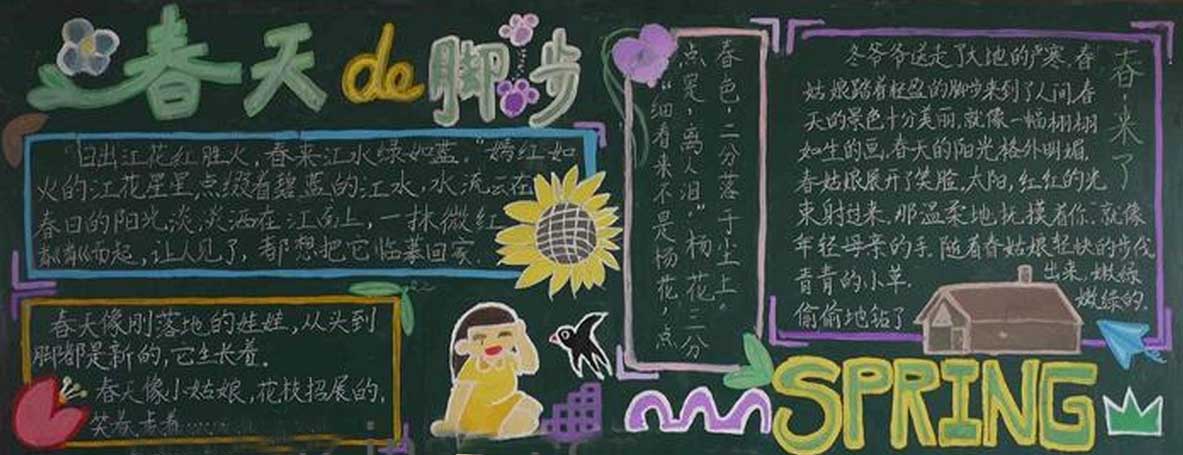 春天de脚步
"日出江花红胜火,春来江水绿如蓝。"嫣红如
火的江花星星点缀着碧蓝的江水,水流云在
春日的阳光淡淡洒在江面上,一抹微红
而起,让人见了,都想把它临摹回家.
春天像刚落地的娃娃,从头到
脚都是新的,它生长着.
春天像小姑娘,花枝招展的,
笑着,走着……
春色,二分落于尘土。"杨花三分
点是,离人泪。
"细看来不是杨花,点
春来了
冬爷爷送走了大地的严寒.春
姑娘踏着轻盈的脚步来到了人间.春
天的景色十分美丽.就像一幅栩栩
如生的画.春天的阳光格外明媚.
春姑娘展开了笑脸,太阳,红红的光
束射过来.那温柔地抚摸着你.就像
年轻母亲的手.随着春姑娘轻快的步伐
青青的小草.
出来,嫩绿
偷偷地钻了
嫩绿的.
SPRING